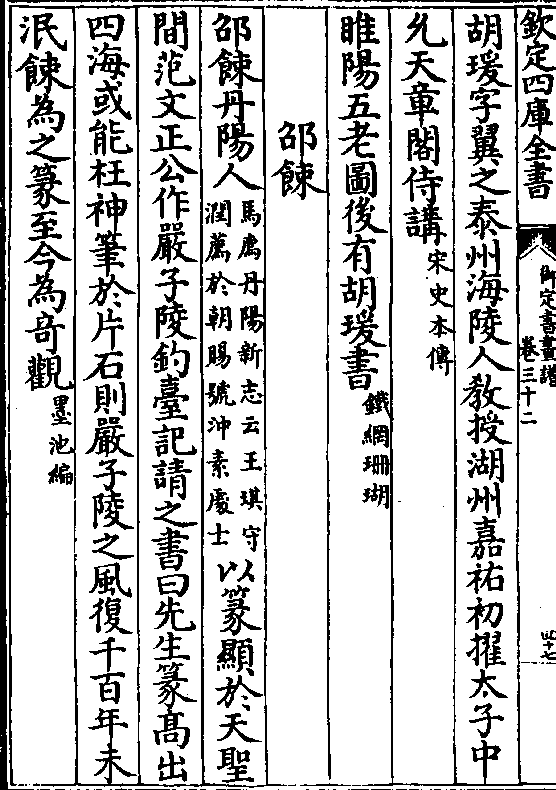 欽定四庫全書
御定書畫譜
卷三十二
四十七
胡瑗字翼之泰州海陵人教授湖州嘉祐初擢太子中
允天章閣侍講宋史本傳
睢陽五老圖後有胡瑗書鐵網珊瑚
邵餗
邵餗丹陽人馬廌丹陽新志云王琪守
潤薦於朝賜號沖素處士以篆顯於天聖
間范文正公作嚴子陵釣臺記請之書曰先生篆高出
四海或能枉神筆於片石則嚴子陵之風復千百年未
泯餗為之篆至今為奇觀墨池編